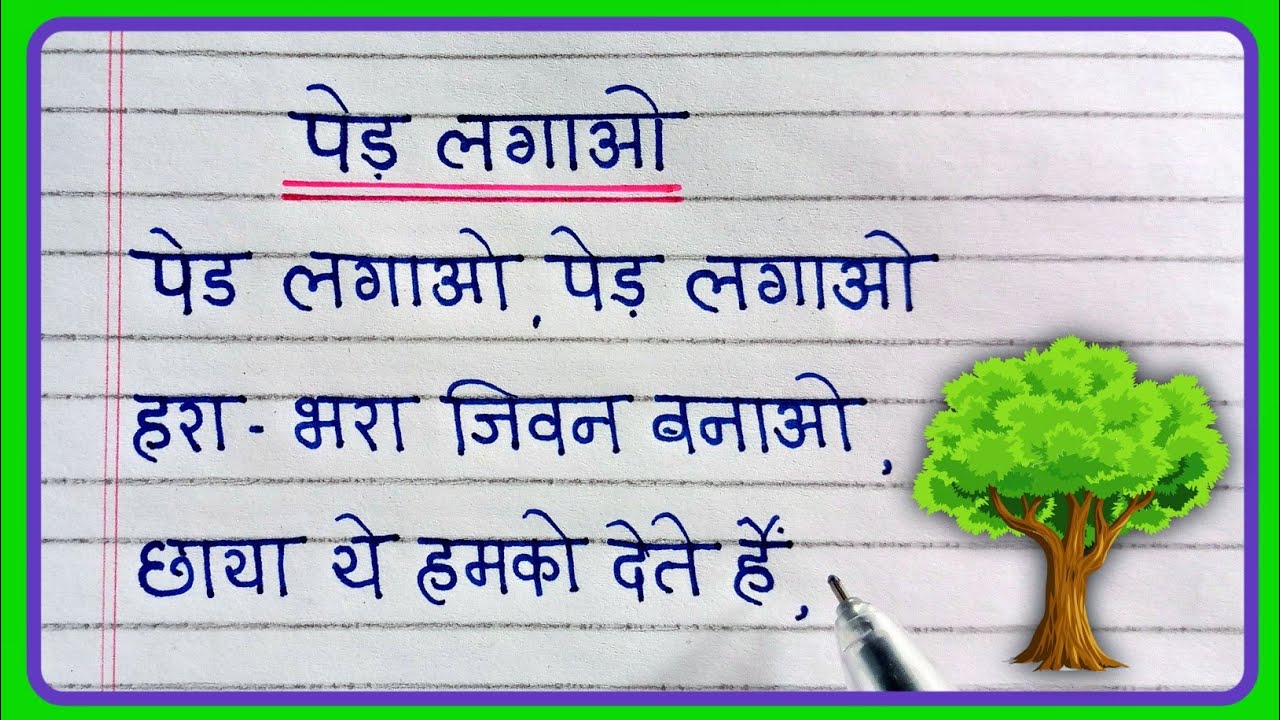 पेड़ लगाओ
पेड लगाओ, पेड़ लगाओ
हरा - भरा जिवन बनाओ,
छाया ये हमको देते हैं,